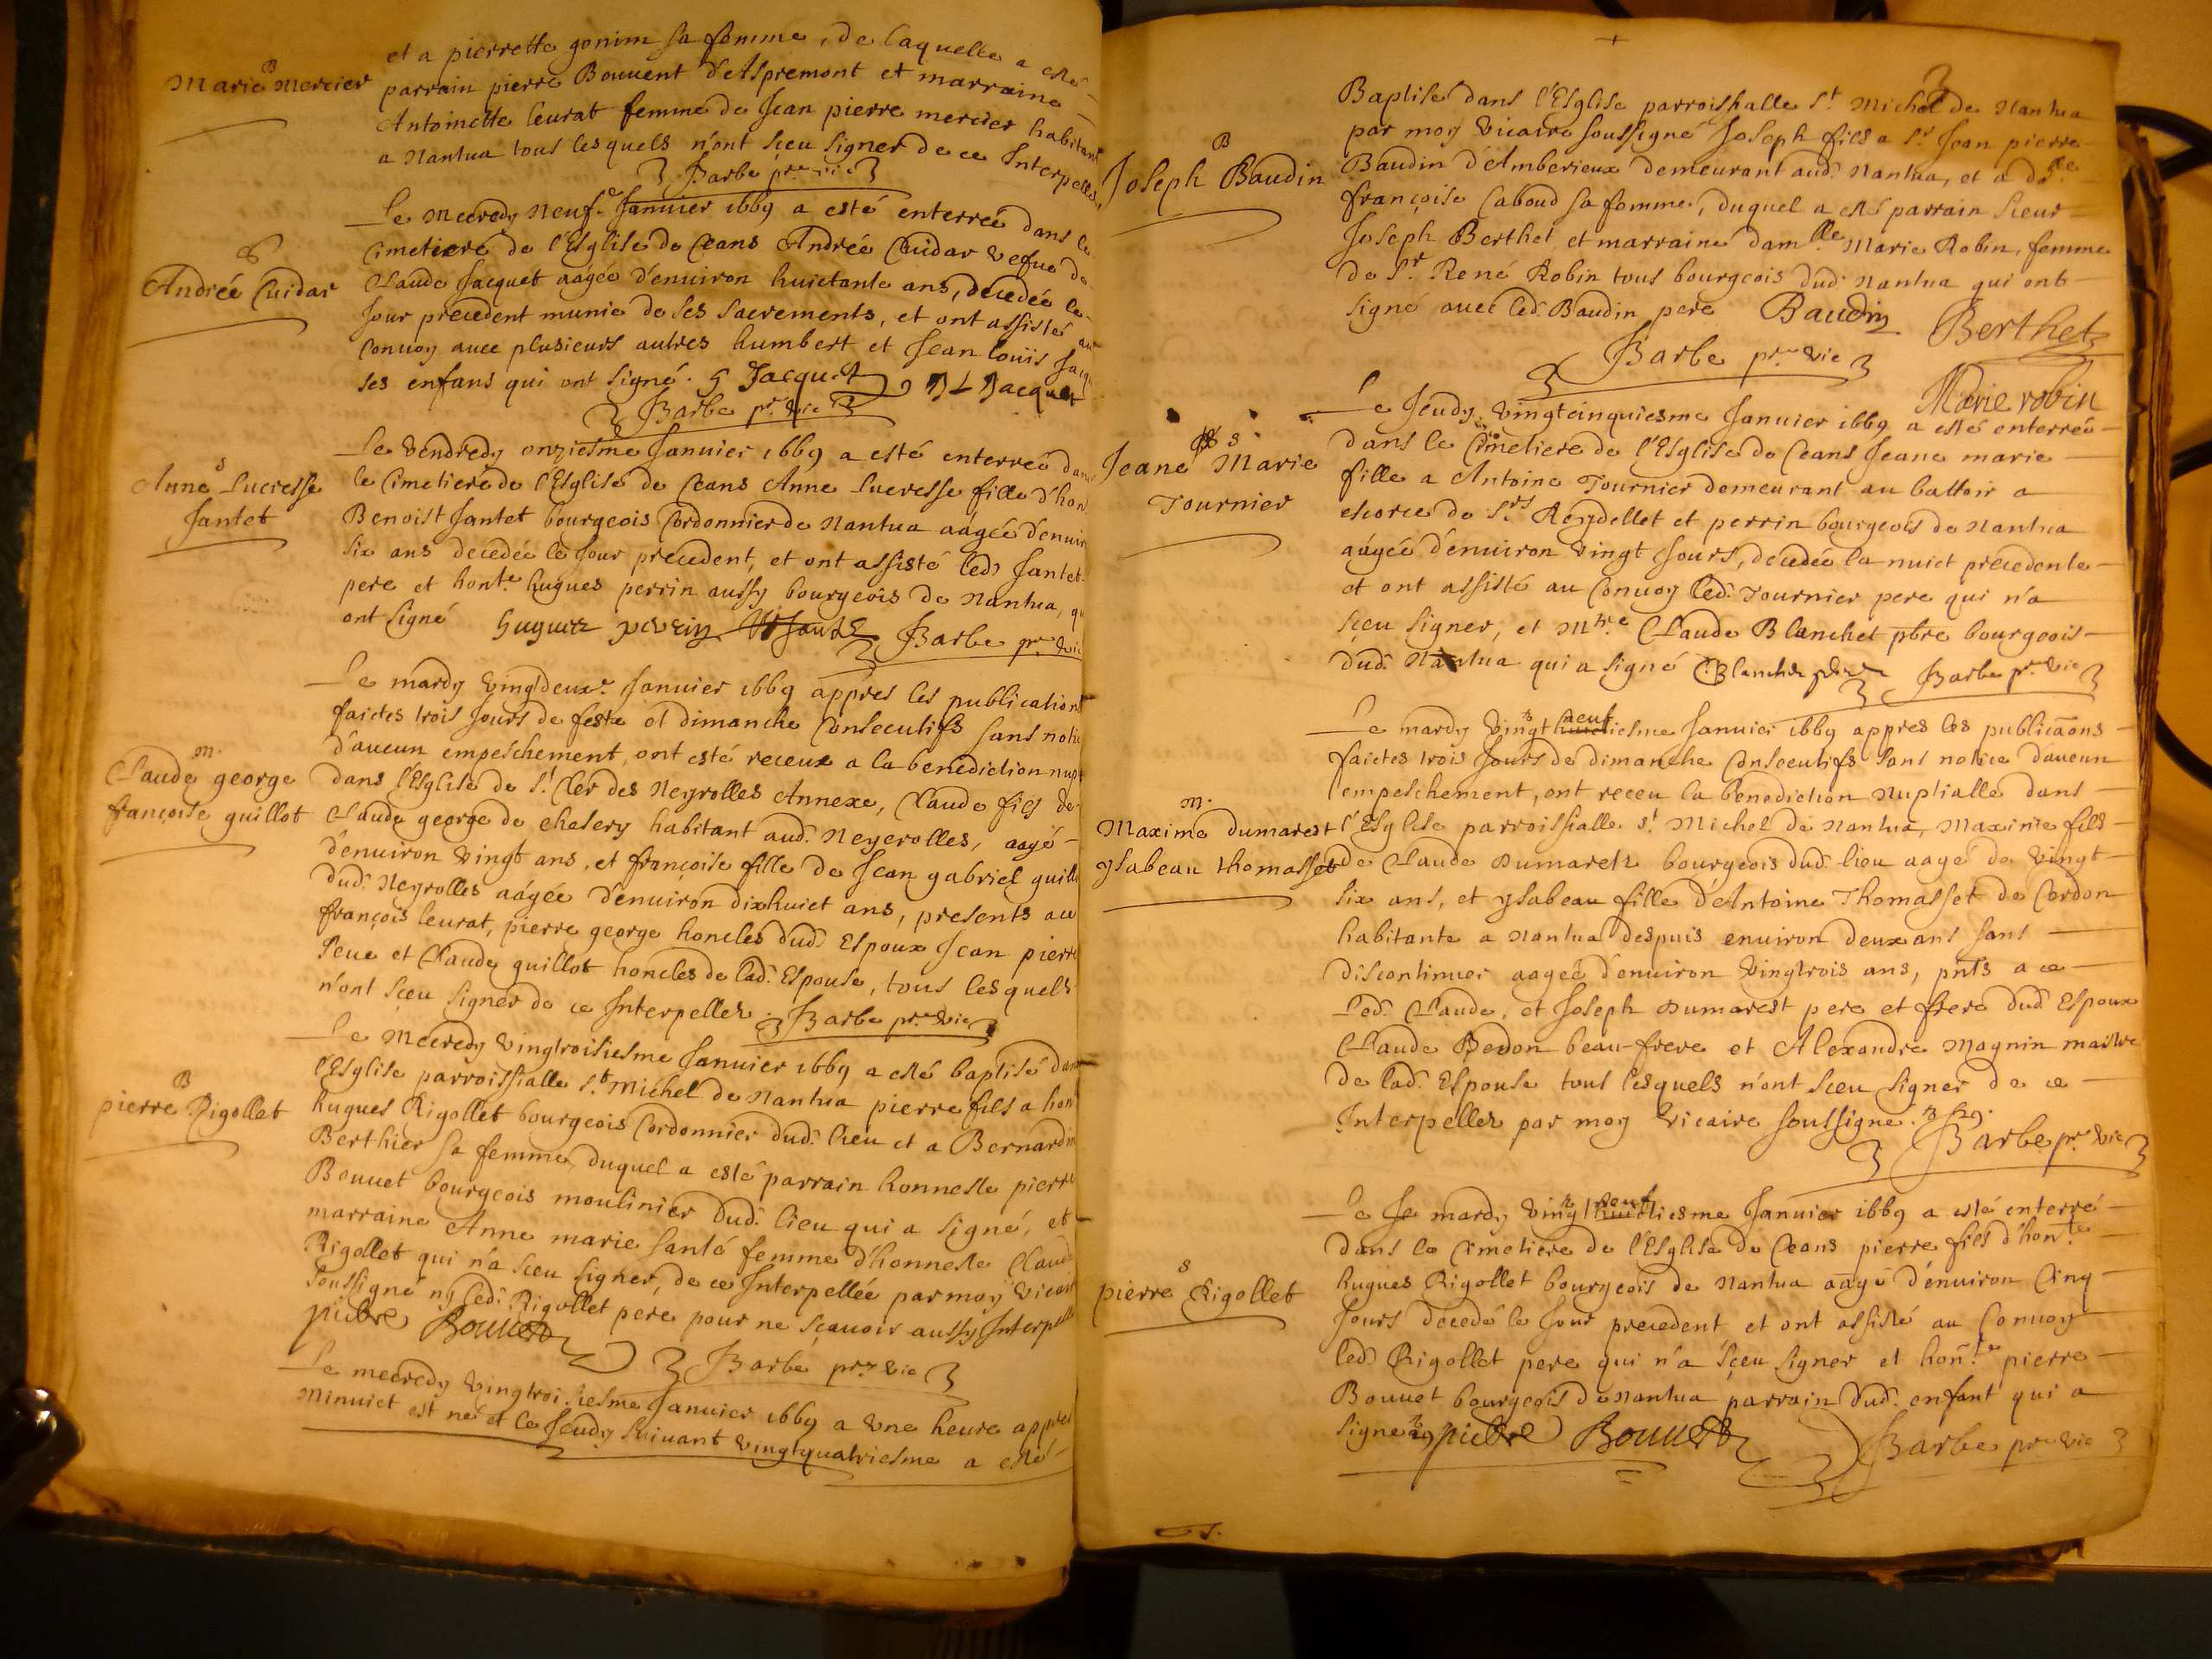 et a pierrette gonim sa femme, de laquelle a esté
B
Marie Mercier
parrain pierre Bouuent d'Aspremont et marraine
Antoinette leurat femme de Jean pierre mercier habitant
a Nantua tous lesquels n'ont sçeu signer de ce Interpellés
Barbe pr. vic
Le Mecredy Neufe Januier 1669 a esté enterreé dans le
Cimetiere de l'Esglise de Ceans Andreé Cuidar vefue de
S
Andreé Cuidar
Claude Jacquet aageé d'enuiron huictante ans, decedeé le
Jour precedent munie de ses sacrements, et ont assisté au
Conuoy auec plusieurs autres humbert et Jean louïs Jacq
ses enfans qui ont signé. Jacquet J L Jacquet
Barbe pr. vic
Le Vendredy onziesme Januier 1669 a esté enterreé dan
S
Anne Lucresse
Jantet
le Cimetiere de l'Esglise de Ceans Anne Lucresse fille d'hon
Benoist Jantet bourgeois Cordonnier de Nantua aageé d'enuir
six ans decedeé le Jour precedent, et ont assisté led. Jantet
pere et honte. hugues perrin aussy bourgeois de Nantua, qu
ont signé huguez perrin Barbe pr. vic
Le mardy vingtdeuxe. Januier 1669 appres les publications
faictes trois Jours de feste et dimanche Consecutifs sans notic
d'aucun empeschement, ont esté receux a la benediction nupt
m.
Claude george
françoise guillot
dans l'Esglise de St. Cler des Neyrolles Annexe, Claude fils de
Claude george de chesery habitant aud. Neyerolles, aagé
d'enuiron vingt ans, et françoise fille de Jean gabriel guill
dud. Neyrolles aageé d'enuiron dixhuict ans, presents a ce
françois leurat, pierre george honcles dud. Espoux Jean pierre
seue et Claude guillot honcles de lad. Espouse, tous lesquels
n'ont sceu signer de ce Interpellez. Barbe pr. vic
Le Mecredy vingtroisiesme Januier 1669 a esté baptisé dans
B
pierre Rigollet
l'Esglise parroissialle St. Michel de Nantua pierre fils a hon
hugues Rigollet bourgeois Cordonnier dud. lieu et a Bernardin
Berthier sa femme, duquel a esté parrain honneste pierre
Bouuet bourgeois moulinier dud. lieu qui a signé, et
marraine Anne marie santé femme d'honneste Claude
Rigollet qui n'a sceu signer, de ce Interpelleé par moy vicaire
soussigné ny led. Rigollet pere pour ne sçauoir aussy Interpellé
pierre Bouuet Barbe pr. vic
Le mecredy vingtroisiesme Januier 1669 a vne heure appres
Minuict est né et le Jeudy suiuant vingtquatriesme a esté
3
Baptisé dans l'Esglise parroissialle St. Michel de Nantua
B
Joseph Baudin
par moy vicaire soussigné Joseph fils a Sr. Jean pierre
Baudin d'Amberieux demeurant aud. Nantua, et a dlle.
françoise Caboud sa femme, duquel a esté parrain sieur
Joseph Berthet et marraine damlle Marie Robin, femme
de Sr. René Robin tous bourgeois dud. Nantua qui ont
signé auec led. Baudin pere Baudin Berthet
Barbe pr. vic
Marie robin
Le Jeudy vingtcinquiesme Januier 1669 a esté enterreé
S
Jeane Marie
Tournier
dans le Cimetiere de l'Esglise de Ceans Jeane marie
fille a Antoine Tournier demeurant au battoir a
escorce de Srs. Reydellet et perrin bourgeois de Nantua
aageé d'enuiron vingt Jours, decedeé la nuict precedente
et ont assisté au Conuoy led. Tournier pere qui n'a
sçeu signer, et Mre. Claude Blanchet pbre bourgeois
dud. Nantua qui a signé C. Blanchet pbre Barbe pr. vic
Le mardy vingt neuf huictiesme Januier 1669 appres les publicaõns
faictes trois Jours de dimanche Consecutifs sans notice d'aucun
empeschement, ont receu la benediction Nuptialle dans
m.
Maxime Dumarest
ysabeau thomasset
l'Esglise parroissialle St. Michel de Nantua, Maxime fils
de Claude Dumarest bourgeois dud. lieu aagé de vingt
six ans, et ysabeau fille d'Antoine Thomasset de Cerdon
habitante a Nantua despuis enuiron deux ans sans
discontinuer aageé d'enuiron vingtrois ans, pnts a ce
led. Claude, et Joseph Dumarest pere et frere dud. Espoux
Claude Bevon beau-frere et Alexandre Magnin maistre
de lad. Espouse tous lesquels n'ont sceu signer de ce
Interpellez par moy vicaire soussigné.
Barbe pr. vic
Le Je mardy vingt neuf huictiesme Januier 1669 a esté enterré
dans le Cimetiere de l'Esglise de Ceans pierre fils d'honte.
S
pierre Rigollet
hugues Rigollet bourgeois de Nantua aagé d'enuiron Cinq
Jours decedé le Jour precedent et ont assisté au Conuoy
led. Rigollet pere qui n'a sçeu signer et honte. pierre
Bouuet bourgeois de Nantua parrain dud. enfant qui a
signé pierre Bouuet Barbe pr. vic